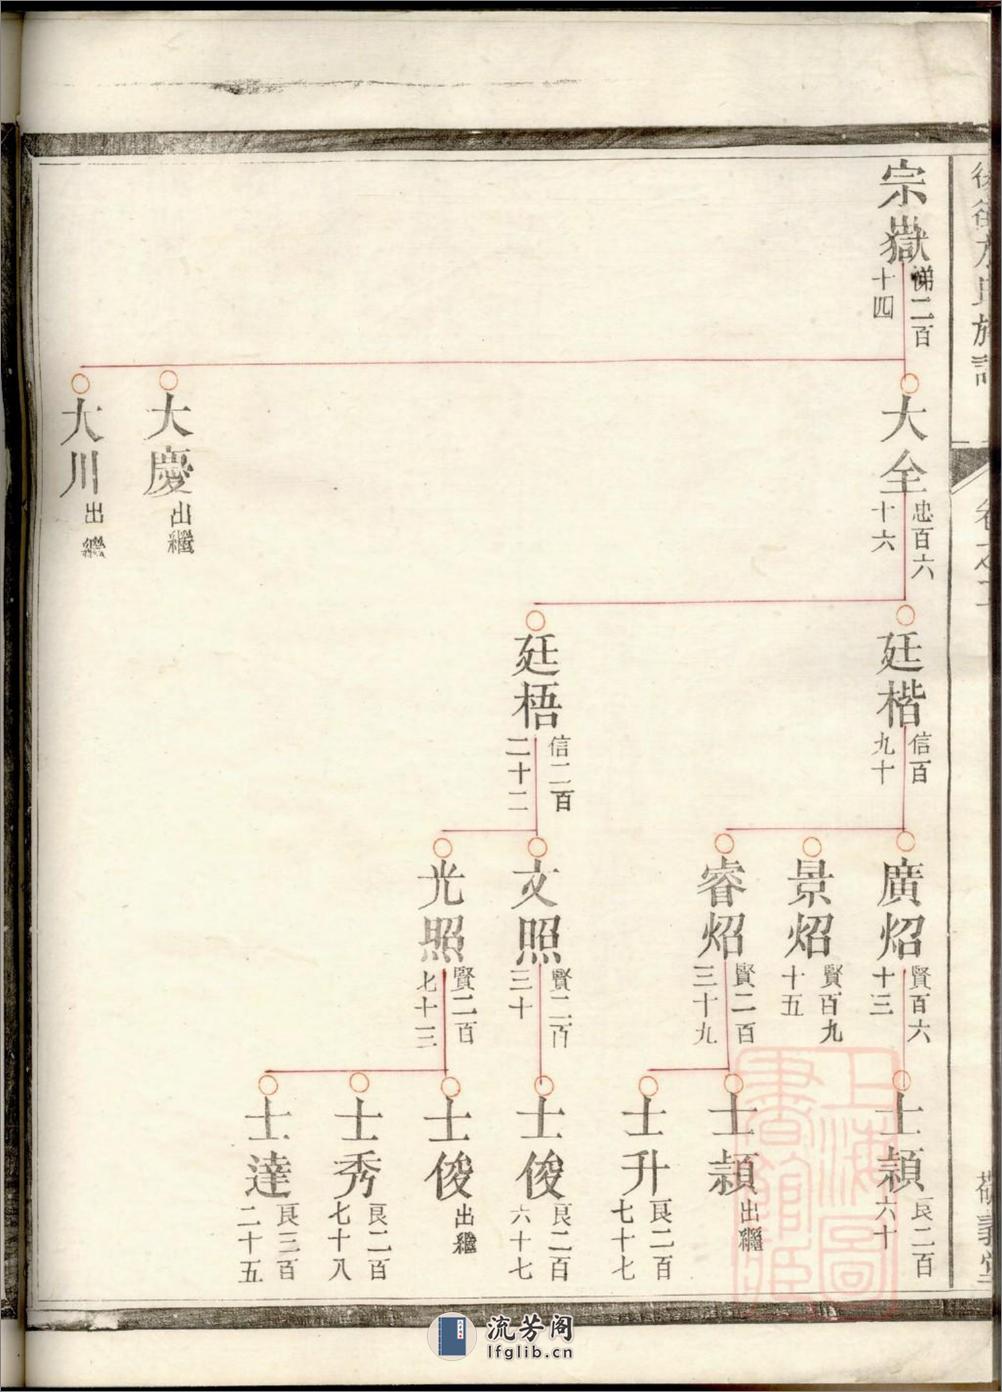 宗嶽
悌二百
十四
大全
忠百六
十六
大慶
出繼
大川
出繼
廷楷
信百
九十
廷梧
信二百
二十二
廣炤
賢百六
十三
景炤
賢百九
十五
睿炤
賢二百
三十九
文照
賢二百
三十
光照
賢二百
七十三
士頴
良二百
六十
士頴
出繼
士升
良二百
七十七
士俊
良二百
六十七
士俊
出繼
士秀
良二百
七十八
士達
良三百
二十五
上海圖
書館藏
流芳阁
lfglib.cn